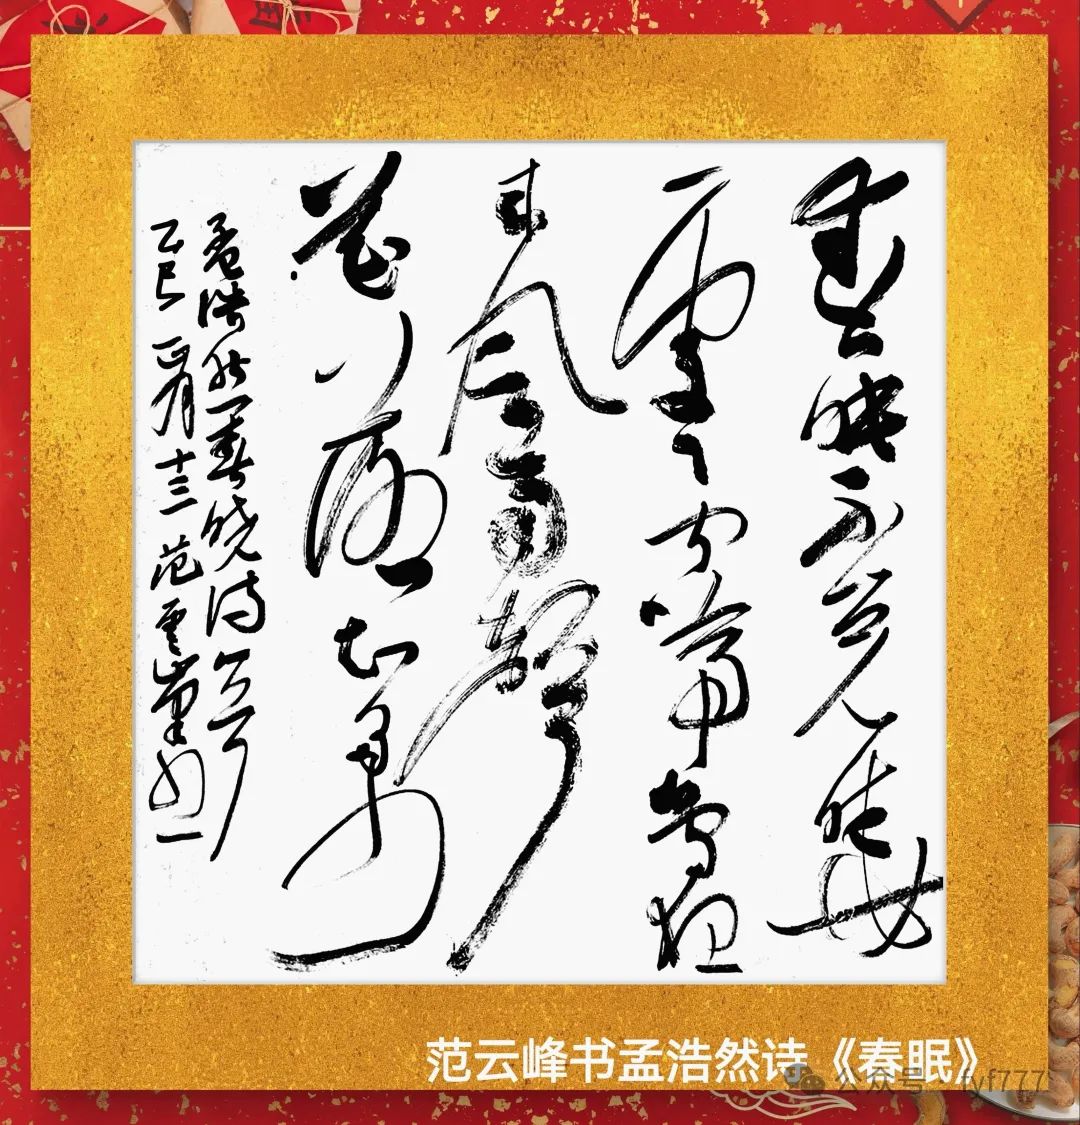 春眠不觉晓
處々闻啼鸟夜
来风雨声
花落知多少
孟浩然春晓诗一首
乙巳正月十三范雲峯书
范云峰书孟浩然诗《春眠》
公众号 · fyf777